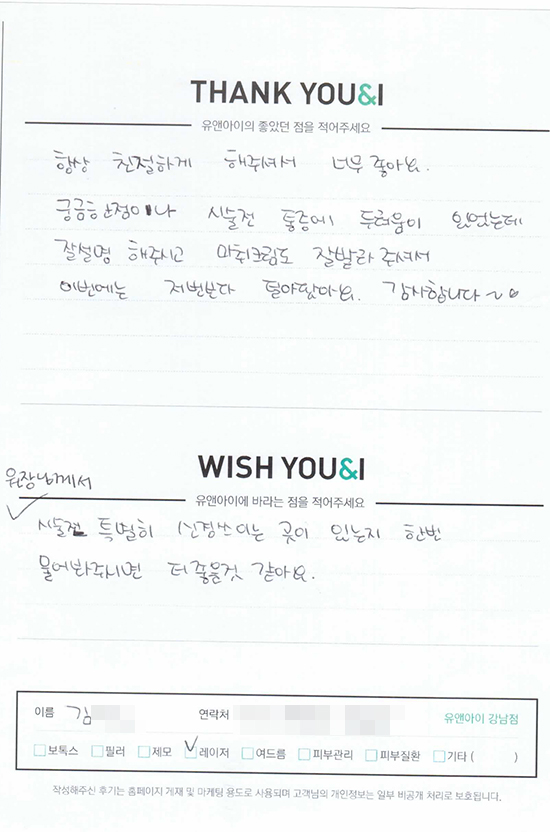 THANK YOU&I
유앤아이의 좋았던 점을 적어주세요
항상 친절하게 해주셔서 너무 좋아요.
궁금한점이나 시술전 통증에 두려움이 있었는데
잘설명 해주시고 마취크림도 잘발라 주셔서
이번에는 저번보다 덜아팠어요. 감사합니다~
WISH YOU&I
유앤아이에 바라는 점을 적어주세요
원장님께서
시술전 특별히 신경쓰이는 곳이 있는지 한번
물어봐주시면 더좋을것 같아요.
이름 김 연락처 유앤아이 강남점
보톡스 필러 제모 레이저 여드름 피부관리 피부질환 기타 ( )
작성해주신 후기는 홈페이지 게재 및 마케팅 용도로 사용되며 고객님의 개인정보는 일부 비공개 처리로 보호됩니다.